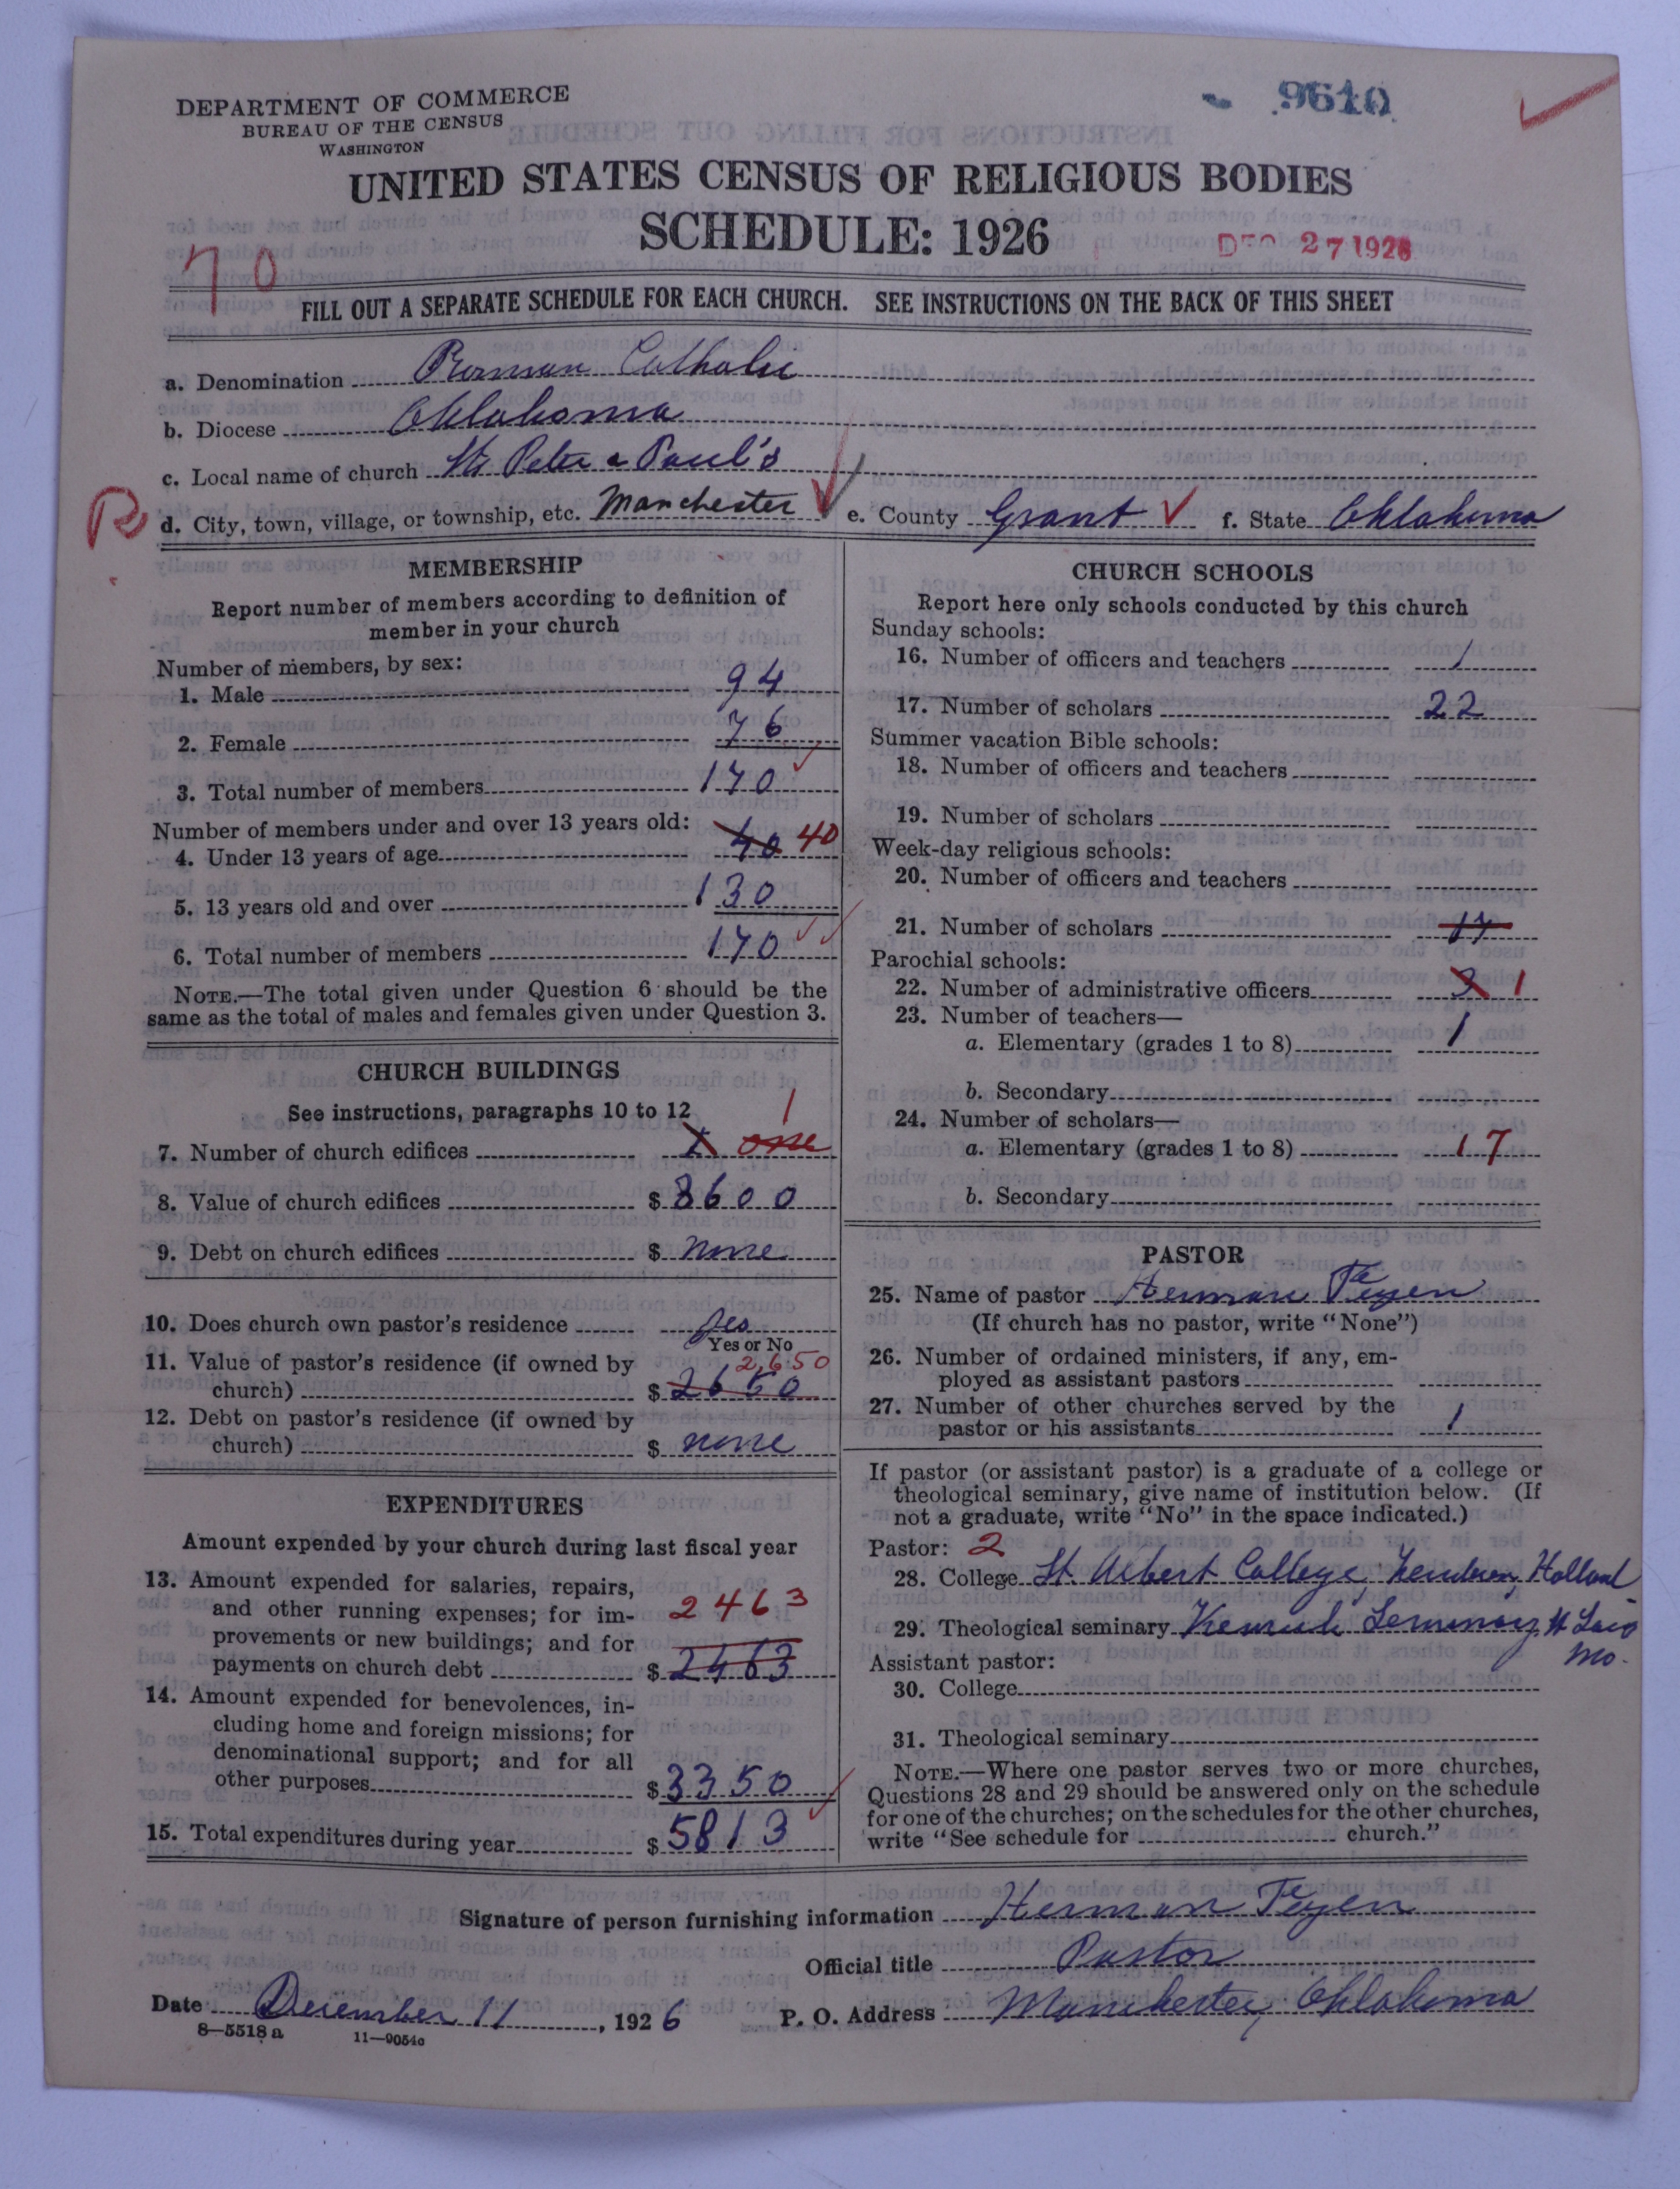 DEPARTMENT OF COMMERCE
BUREAU OF THE CENSUS
WASHINGTON
9610
UNITED STATES CENSUS OF RELIGIOUS BODIES
SCHEDULE: 1926
27 1926
70
FILL OUT A SEPARATE SCHEDULE FOR EACH CHURCH. SEE INSTRUCTIONS ON THE BACK OF THIS SHEET
a. Denomination Roman Catholic
b. Diocese Oklahoma
c. Local name of church Sts Peter & Paul's
R
d. City, town, village, or township, etc. Manchester e. County Grant f. State Oklahoma
MEMBERSHIP
Report number of members according to definition of
member in your church
Number of members, by sex:
1. Male 94
2. Female 76
3. Total number of members 170
Number of members under and over 13 years old:
4. Under 13 years of age 40 40
5. 13 years old and over 130
6. Total number of members 170
NOTE.—The total given under Question 6 should be the
same as the total of males and females given under Question 3.
CHURCH BUILDINGS
See instructions, paragraphs 10 to 12
1
7. Number of church edifices 1 one
8. Value of church edifices $ 8600
9. Debt on church edifices $ none
10. Does church own pastor's residence yes
Yes or No
11. Value of pastor's residence (if owned by 2,650
church) $ 2650
12. Debt on pastor's residence (if owned by
church) $ none
EXPENDITURES
Amount expended by your church during last fiscal year
13. Amount expended for salaries, repairs,
and other running expenses; for im- 2463
provements or new buildings; and for
payments on church debt $ 2463
14. Amount expended for benevolences, in-
cluding home and foreign missions; for
denominational support; and for all
other purposes $ 3350
15. Total expenditures during year $ 5813
CHURCH SCHOOLS
Report here only schools conducted by this church
Sunday schools:
16. Number of officers and teachers 1
17. Number of scholars 22
Summer vacation Bible schools:
18. Number of officers and teachers
19. Number of scholars
Week-day religious schools:
20. Number of officers and teachers
21. Number of scholars 17
Parochial schools:
22. Number of administrative officers 3 1
23. Number of teachers—
a. Elementary (grades 1 to 8) 1
b. Secondary
24. Number of scholars—
a. Elementary (grades 1 to 8) 17
b. Secondary
PASTOR
25. Name of pastor Herman Teyen
(If church has no pastor, write "None")
26. Number of ordained ministers, if any, em-
ployed as assistant pastors
27. Number of other churches served by the
pastor or his assistants 1
If pastor (or assistant pastor) is a graduate of a college or
theological seminary, give name of institution below. (If
not a graduate, write "No" in the space indicated.)
Pastor: 2
28. College St. College, Holland
29. Theological seminary Kenrick Seminary St Louis
Mo.
Assistant pastor:
30. College
31. Theological seminary
NOTE.—Where one pastor serves two or more churches,
Questions 28 and 29 should be answered only on the schedule
for one of the churches; on the schedules for the other churches,
write "See schedule for church."
Signature of person furnishing information Herman Teyen
Official title Pastor
Date December 11, 1926 P. O. Address Manchester, Oklahoma
8—5518 a 11—9054c